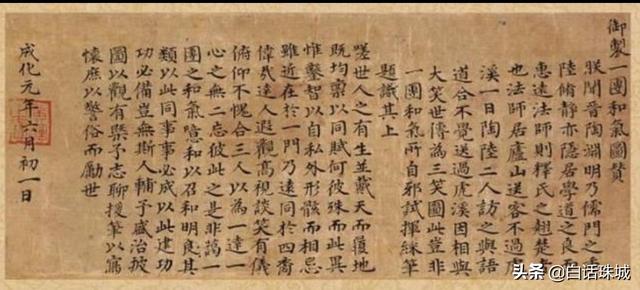 御製一團和氣圖贊
朕聞晉陶淵明乃儒門之秀
陸脩靜亦隱居學道之良而
惠遠法師則釋氏之翹楚者
也法師居廬山送客不過虎
溪一日陶陸二人訪之與語
道合不覺送過虎溪因相與
大笑世傳為三笑圖此豈非
一團和氣所自邪試揮綵筆
題識其上
嗟世人之有生並戴天而履地
既均稟以同賦何彼殊而此異
惟鑿智以自私外形骸而相忌
雖近在於一門乃遠同於四裔
偉哉達人遐觀高視談笑有儀
俯仰不愧合三人以為一達一
心之無二忘彼此之是非藹一
團之和氣噫和以召和明良其
類以此同事事必成以此建功
功必備豈無斯人輔予盛治披
圖以觀有槩予志聊援筆以寫
懷庶以警俗而勵世
成化元年六月初一日
头条 @白话珠城